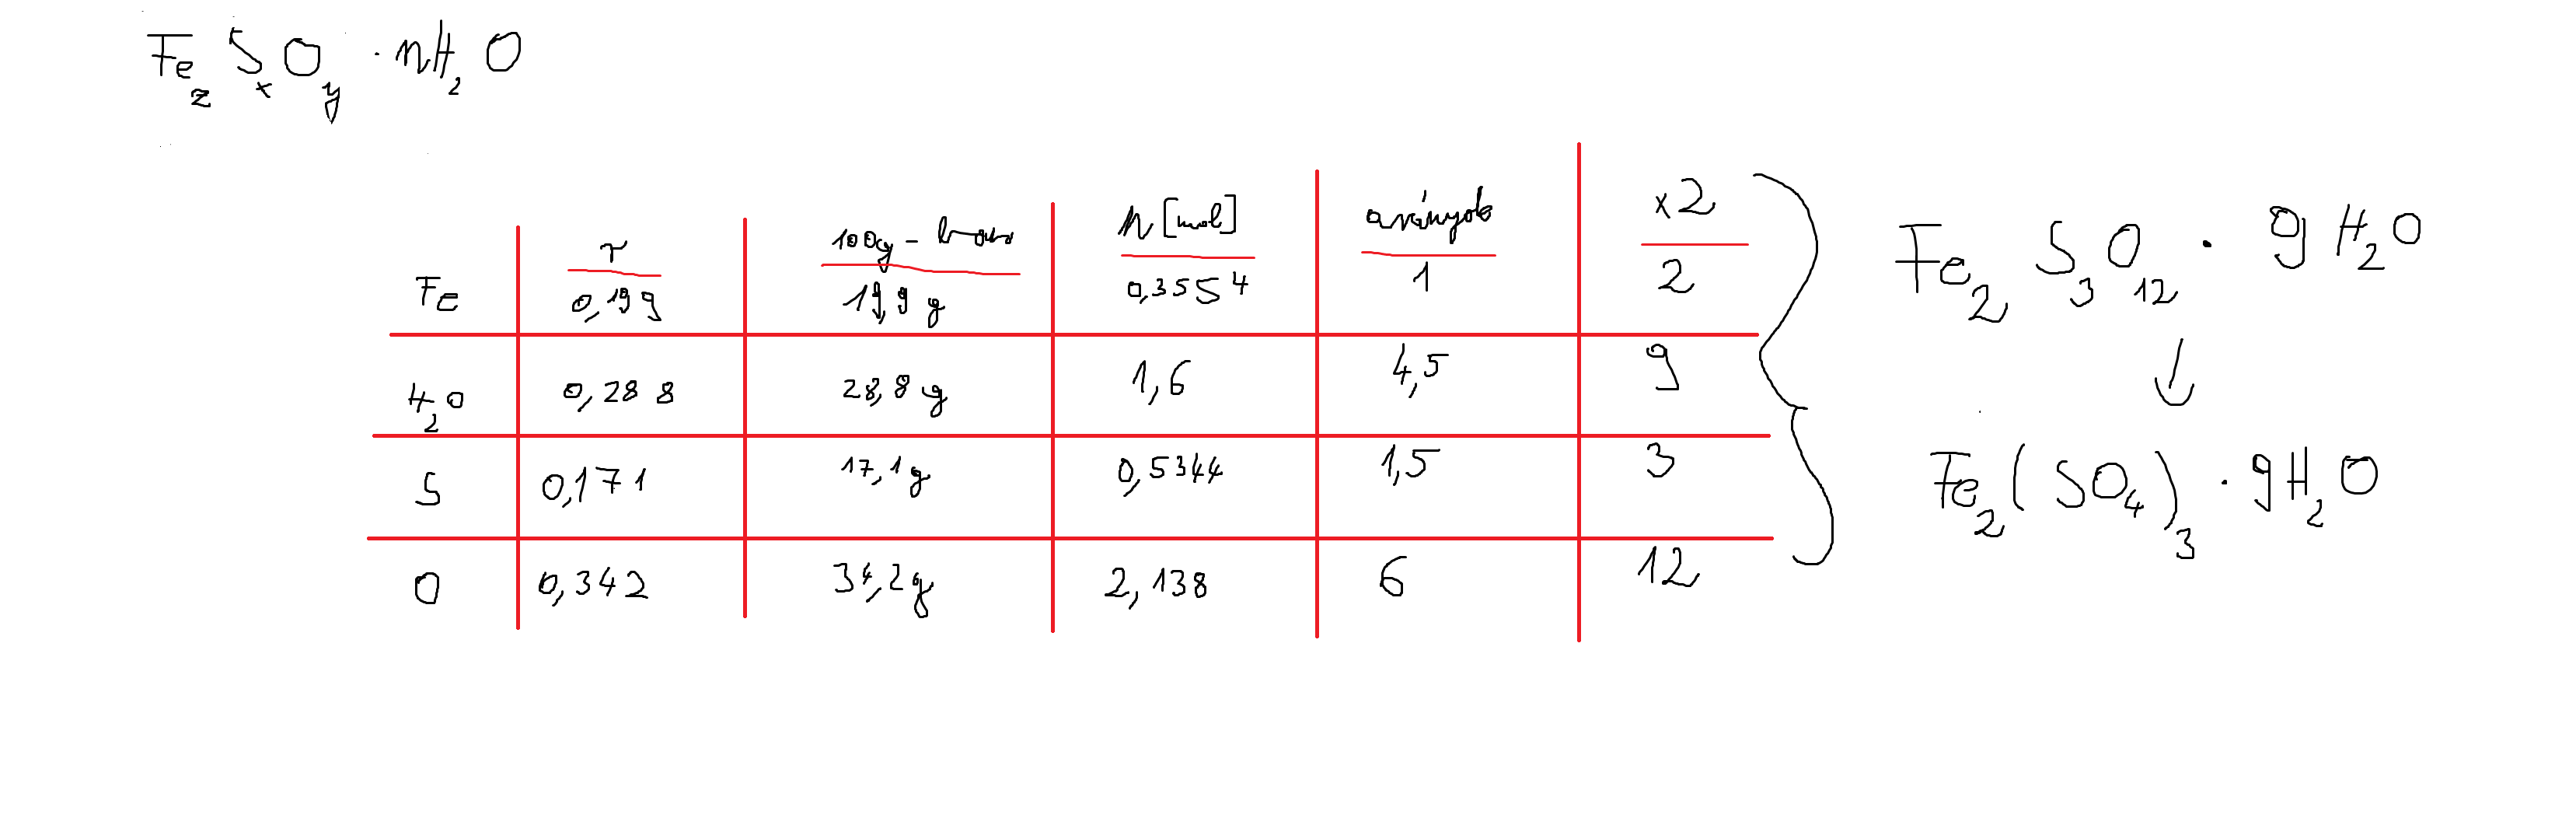 Fe_z S_x O_y · nH_2O
r 100g-ban n [mol] arányok x2
Fe 0,199 19,9 g 0,3554 1 2
H_2O 0,288 28,8 g 1,6 4,5 9
S 0,171 17,1 g 0,5344 1,5 3
O 0,342 34,2 g 2,138 6 12
Fe_2 S_3 O_12 · 9 H_2O
↓
Fe_2(SO_4)_3 · 9H_2O